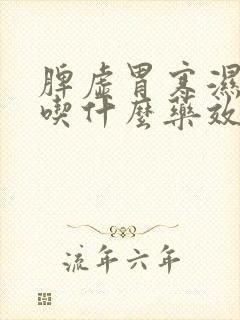 脾虛胃寒濕
喫什麼藥效
流年六年